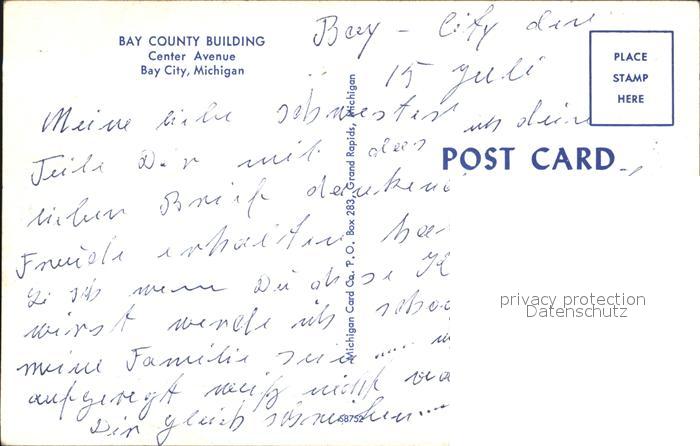 BAY COUNTY BUILDING
Center Avenue
Bay City, Michigan
Bay - City den
15 Juli
PLACE
STAMP
HERE
POST CARD
Meine liebe Schwester
Teile Dir mit das ich dein
lieben Brief dankend
Freude erhalten
wenn Du diese
wirst werde ich schon
meine Familie sein ....
aufgeregt weiß nicht
Dir gleich schreiben ....
Michigan Card Co. P. O. Box 283, Grand Rapids, Michigan
68752
privacy protection
Datenschutz